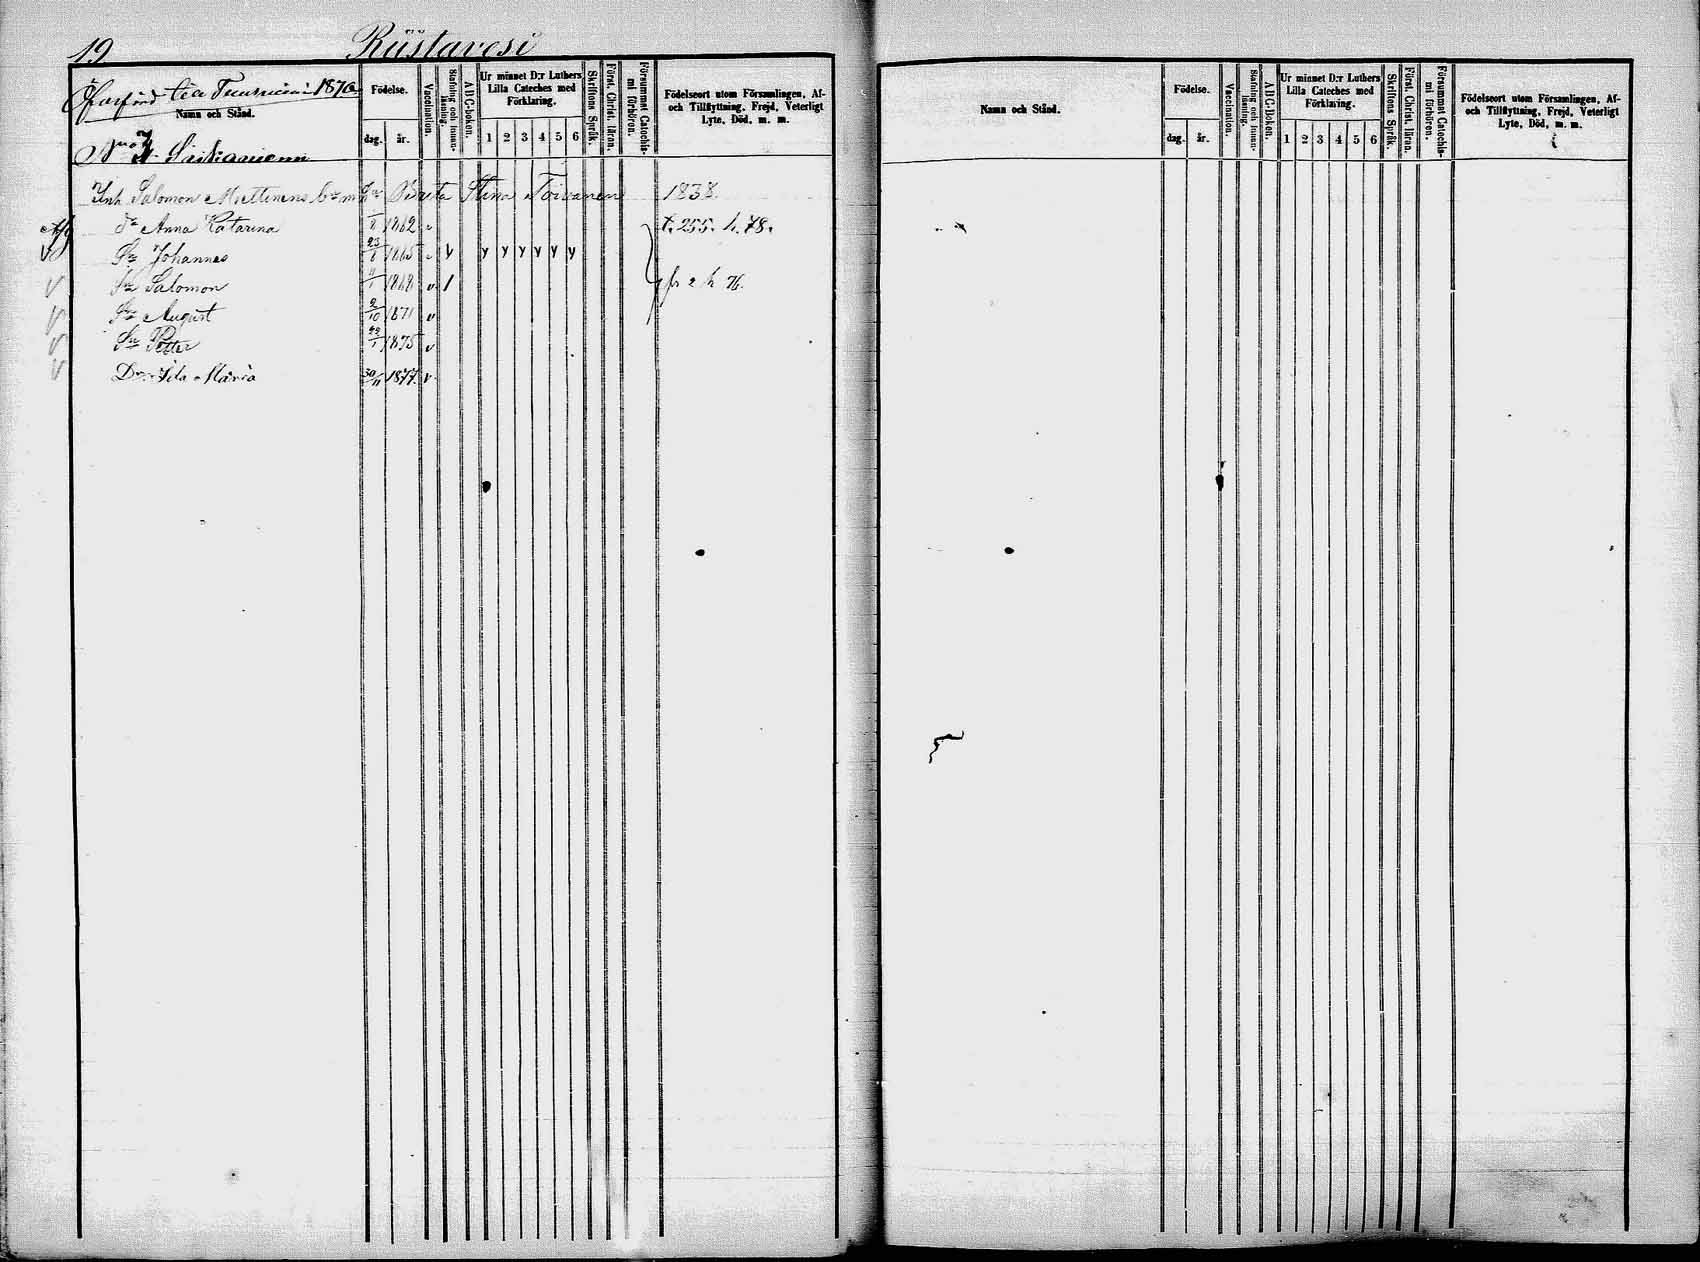 19
Riistavesi
1876
Namn och Stånd.
Födelse.
dag. år.
Vaccination.
Stafning och innanläsning.
A B C-boken.
Ur minnet D:r Luthers Lilla Cateches med Förklaring.
1 2 3 4 5 6
Skriftens Språk.
Först. Christ. läran.
Försummat Catechismi förhören.
Födelseort utom Församlingen, Af- och Tillflyttning, Frejd, Veterligt Lyte, Död, m. m.
Inh Salomon Miettinens Brita Stina Toivanen 1838
Anna Katarina 1862 v t. 255. h. 78.
23/8 1865 v v y y y y y y
Sn Johannes
Sn Salomon 1868 v fr 2 h 76.
Sn August 2/10 1871 v
Sn Petter 1875 v
Dr Ida Maria 30/11 1877 v
Namn och Stånd.
Födelse.
dag. år.
Vaccination.
Stafning och innanläsning.
A B C-boken.
Ur minnet D:r Luthers Lilla Cateches med Förklaring.
1 2 3 4 5 6
Skriftens Språk.
Först. Christ. läran.
Försummat Catechismi förhören.
Födelseort utom Församlingen, Af- och Tillflyttning, Frejd, Veterligt Lyte, Död, m. m.